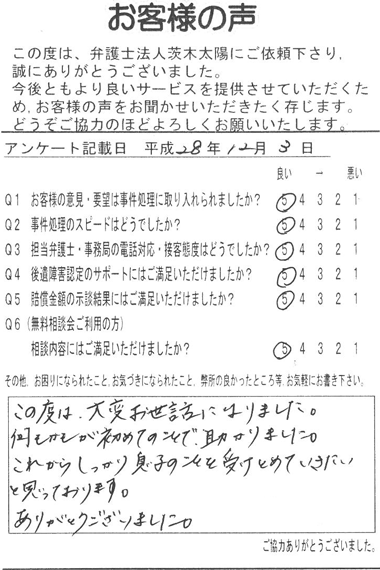 お客様の声
この度は、弁護士法人茨木太陽にご依頼下さり、
誠にありがとうございました。
今後ともより良いサービスを提供させていただくた
め、お客様の声をお聞かせいただきたく存じます。
どうぞご協力のほどよろしくお願いいたします。
アンケート記載日 平成28年12月3日
良い → 悪い
Q1 お客様の意見・要望は事件処理に取り入れられましたか? 5 4 3 2 1
Q2 事件処理のスピードはどうでしたか? 5 4 3 2 1
Q3 担当弁護士・事務局の電話対応・接客態度はどうでしたか? 5 4 3 2 1
Q4 後遺障害認定のサポートにはご満足いただけましたか? 5 4 3 2 1
Q5 賠償金額の示談結果にはご満足いただけましたか? 5 4 3 2 1
Q6 (無料相談会ご利用の方)
相談内容にはご満足いただけましたか? 5 4 3 2 1
その他、お困りになられたこと、お気づきになられたこと、弊所の良かったところ等、お気軽にお書き下さい。
この度は、大変お世話になりました。
何もかもが初めてのことで、助かりました。
これからしっかり息子のことを受けとめていきたい
と思っております。
ありがとうございました。
ご協力ありがとうございました。